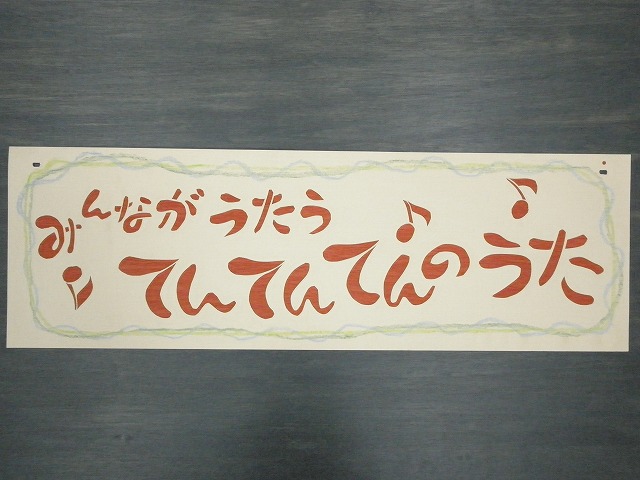 みんながうたう
てんてんてんのうた